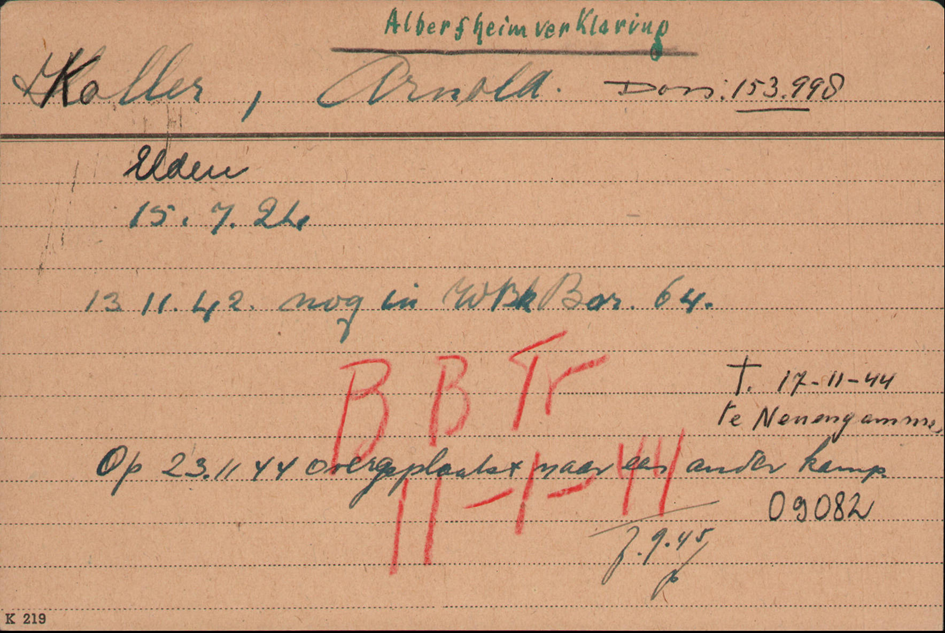 Albersheimverklaring
Koller, Arnold. Doss: 153.998
Elden
15. 7. 24
13 11.42. nog in WBk Bar. 64.
B B Tr
†. 17-11-44
te Neuengamme
Op 23.11 44 overgeplaatst naar een ander kamp
11-1-44
09082
9.45
K 219